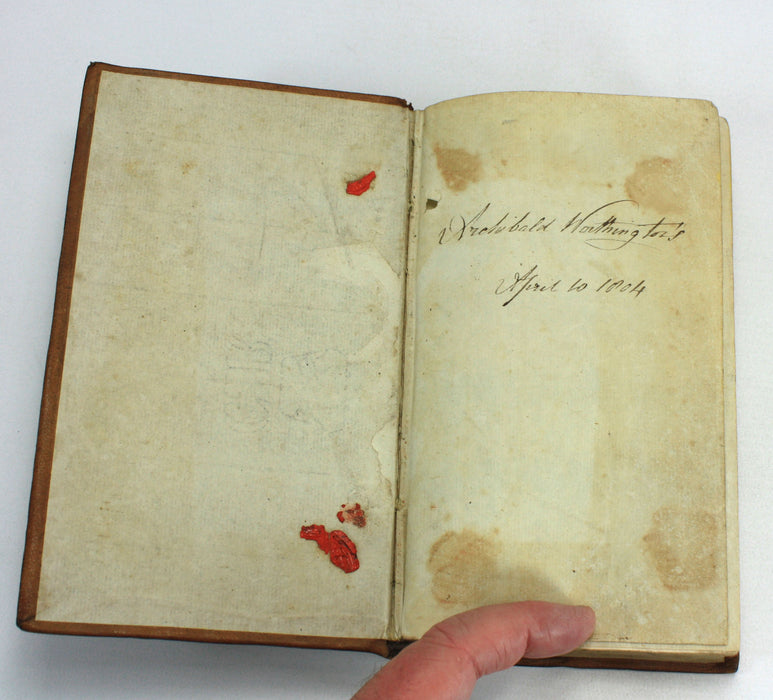 Archibald Worthington's
April 10 1804